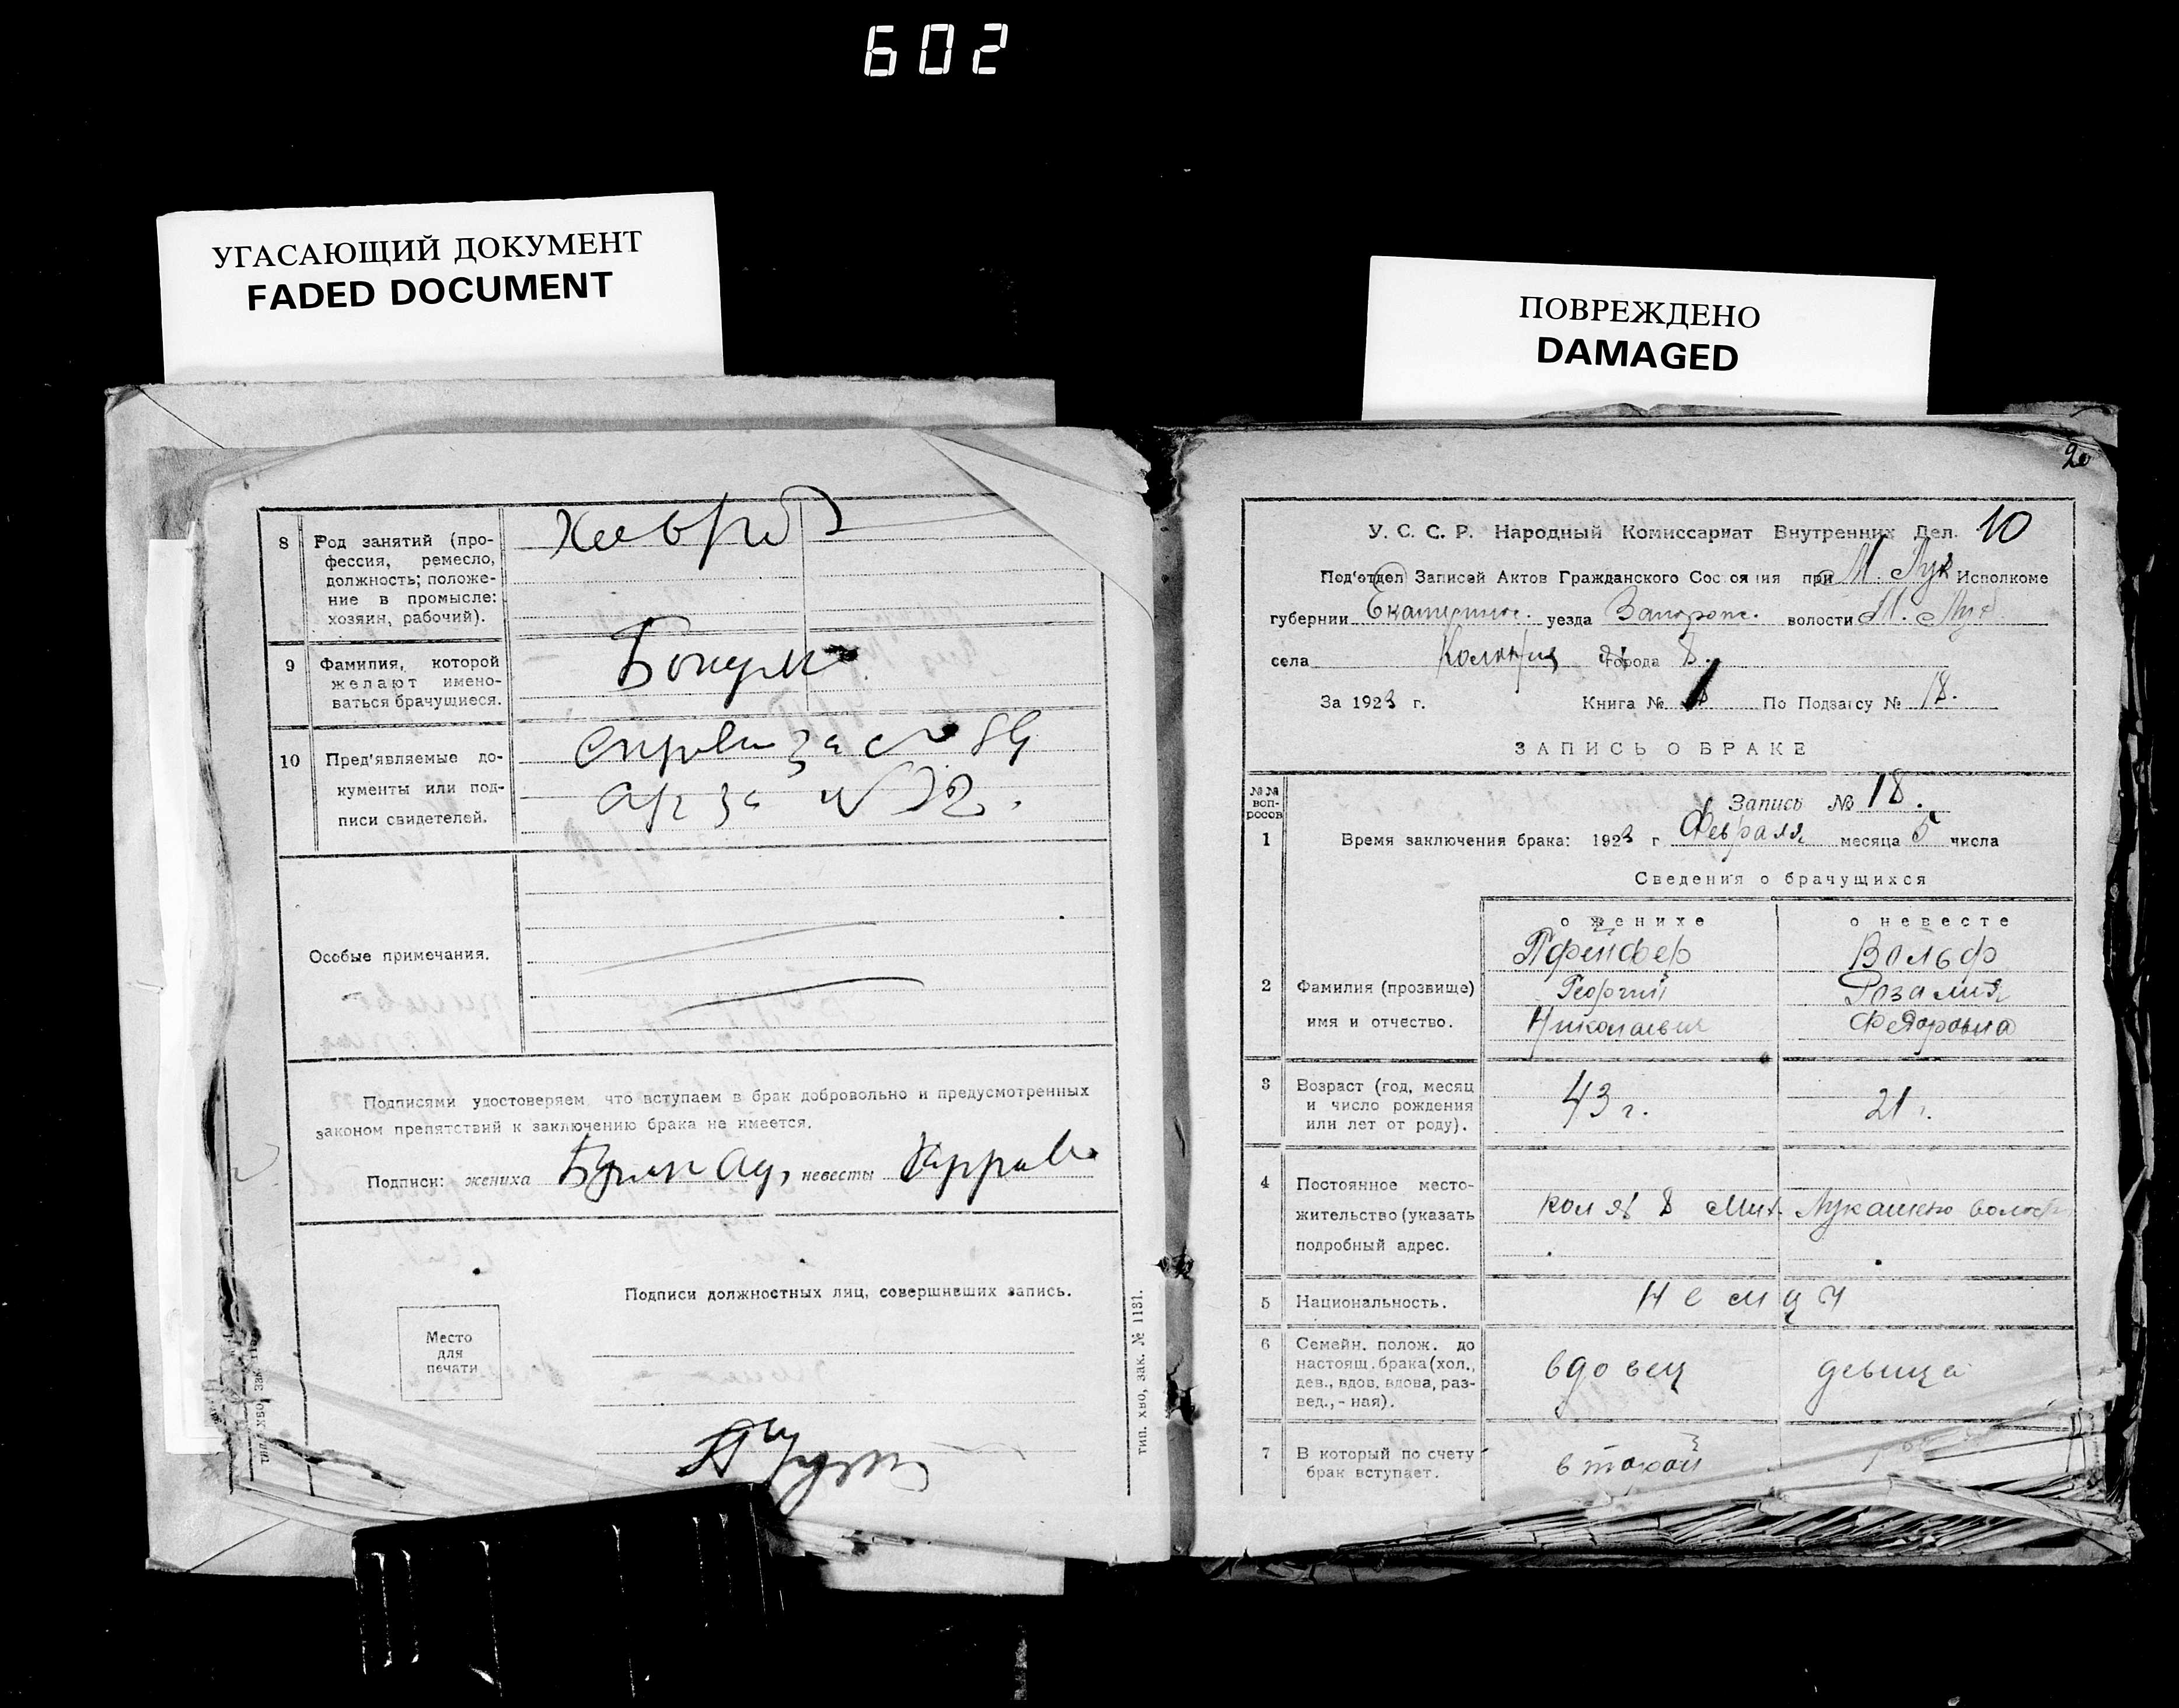 602
УГАСАЮЩИЙ ДОКУМЕНТ
FADED DOCUMENT
ПОВРЕЖДЕНО
DAMAGED
8 Род занятий (про-
фессия, ремесло,
должность; положе-
ние в промысле:
хозяин, рабочий).
9 Фамилия, которой
желают имено-
ваться брачущиеся.
10 Пред'являемые до-
кументы или под-
писи свидетелей.
№ 89
№ 32.
Особые примечания.
Подписями удостоверяем что вступаем в брак добровольно и предусмотренных
законом препятствий к заключению брака не имеется.
Подписи: жениха невесты
Подписи должностных лиц, совершивших запись.
Место
для
печати
тип. хво, зак. № 1131.
20
У. С. С. Р. Народный Комиссариат Внутренних Дел. 10
Под'отдел Записей Актов Гражданского Состояния при М. Лук Исполкоме
губернии Екатеринос. уезда Запорож. волости М. Лук
села Колония города 8.
За 1923 г. Книга № По Подзагсу № 18.
ЗАПИСЬ О БРАКЕ
№№ воп-росов
Запись № 18.
1 Время заключения брака: 1923 г Февраля месяца 5 числа
Сведения о брачущихся
о женихе о невесте
Пфейфер Вольф
2 Фамилия (прозвище) Георгий Розалия
имя и отчество. Николаевич Федоровна
3 Возраст (год, месяц
и число рождения
или лет от роду). 43 г. 21 г.
4 Постоянное место-
жительство (указать кол № 8 Мих. Лукашево волост
подробный адрес.
5 Национальность. немцы
6 Семейн. полож. до
настоящ. брака (хол.,
дев., вдов, вдова, раз-
вед., - ная). вдовец девица
7 В который по счету
брак вступает. второй